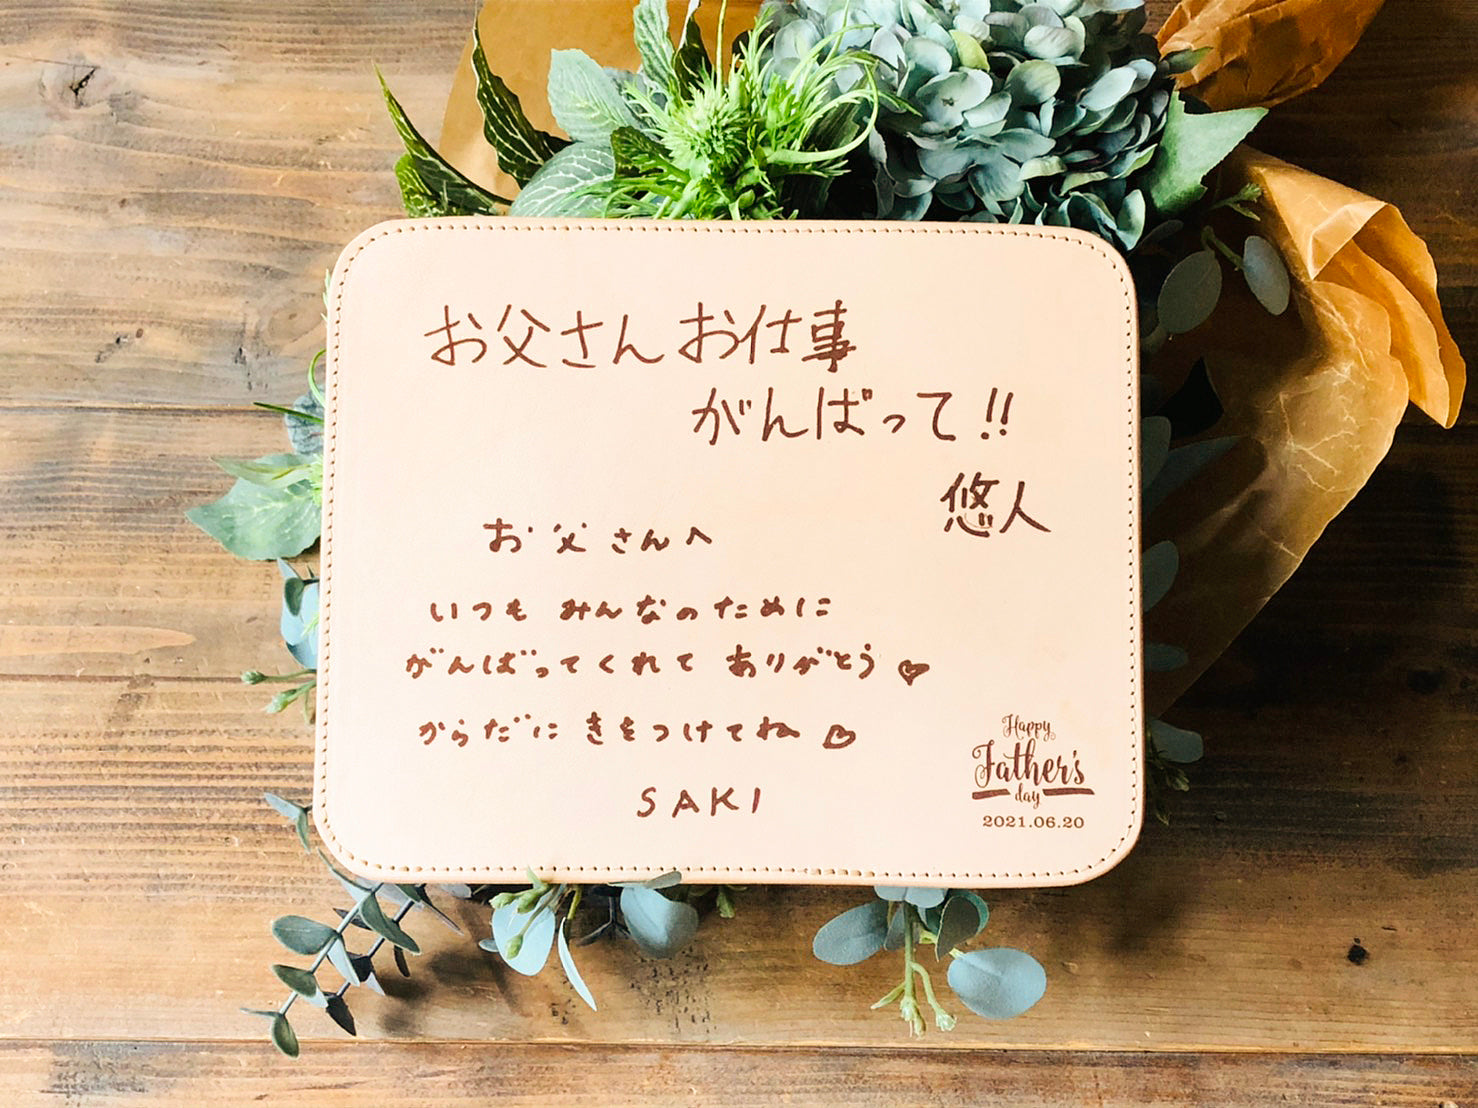 お父さんお仕事
がんばって!!
悠人
お父さんへ
いつも みんなのために
がんばってくれて ありがとう♡
からだに きをつけてね♡
SAKI
Happy
Father's
day
2021.06.20